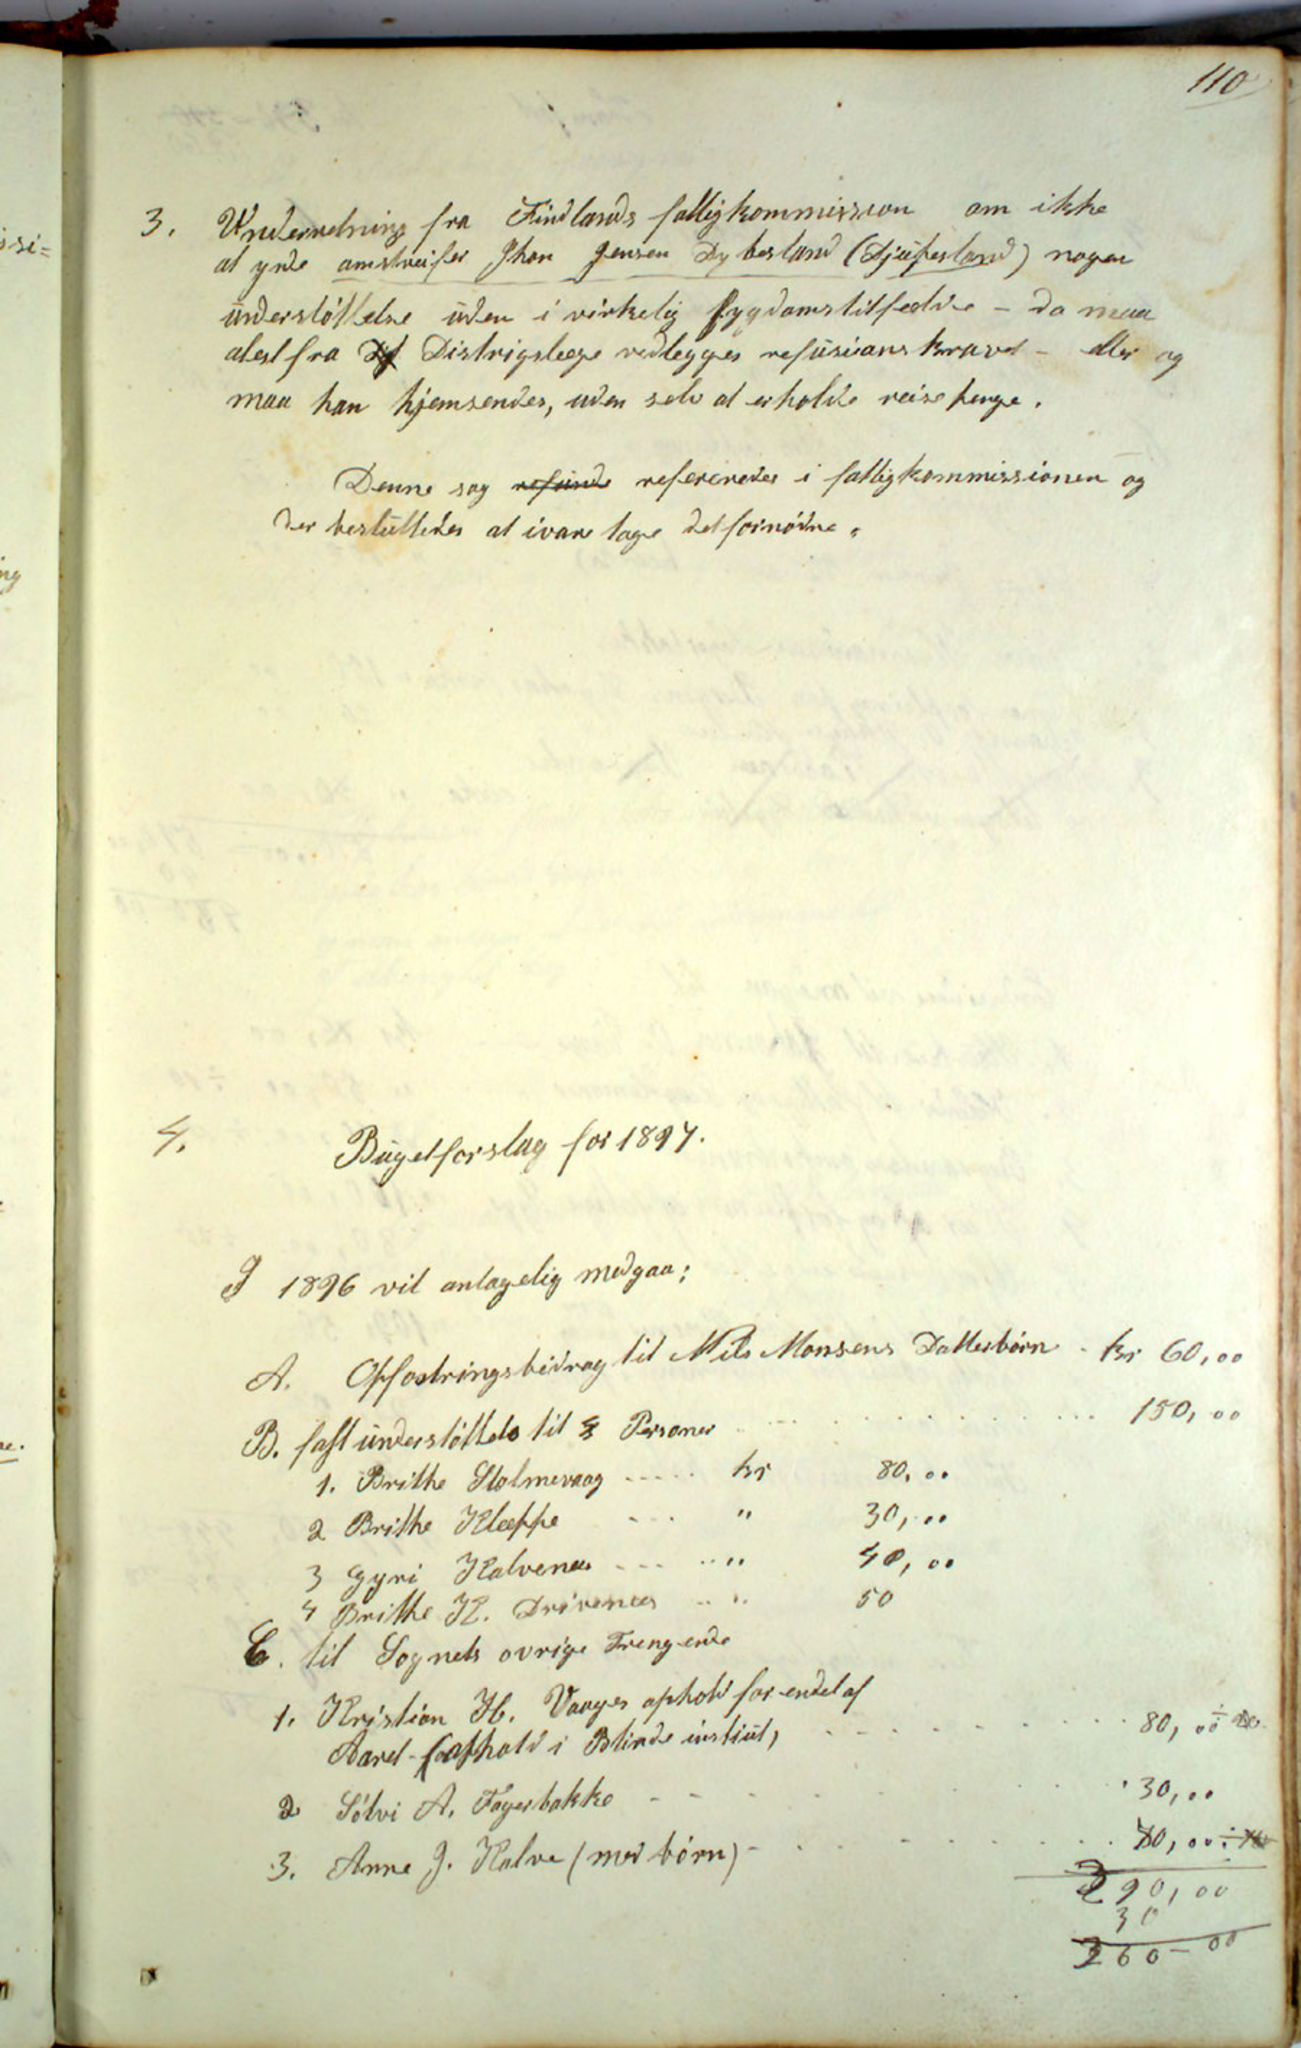 110
3. Underretning fra Findlands fattigkommission om ikke
at yde omstreifer Jhon Jensen Dybesland (Djupesland) nogen
understøttelse uden i virkelig sygdomstilfælde – da maa
atest fra Distrigslæge vedlegges refusions kravet – eller og
maa han hjemsendes, uden selv at erholde reisepenge.
Denne sag refunde refereredes i fattigkommissionen og
der besluttedes at ivaretage det fornødne.
4. Bugetforslag for 1897.
I 1896 vil antagelig medgaa:
A. Opfostringsbidrag til Nils Monsens Datterbørn - kr 60,00
B. fast understøttels til 4 Personer 150,00
1. Brithe Stolmevaag kr 80,00
2 Brithe Kleppe " 30,00
3 Gyri Kalvenes " 40,00
4 Brithe K. Drivenes " 50
C. til Sognets ovrige Trengende
1. Kristian H. Vaages ophold for endel af
Aaret – (ophold i Blinde instiut, 80,00
2 Sølvi A. Fagerbakke 30,00
3. Anne J. Kalve (med børn) 70,00
290,00
30
260–00